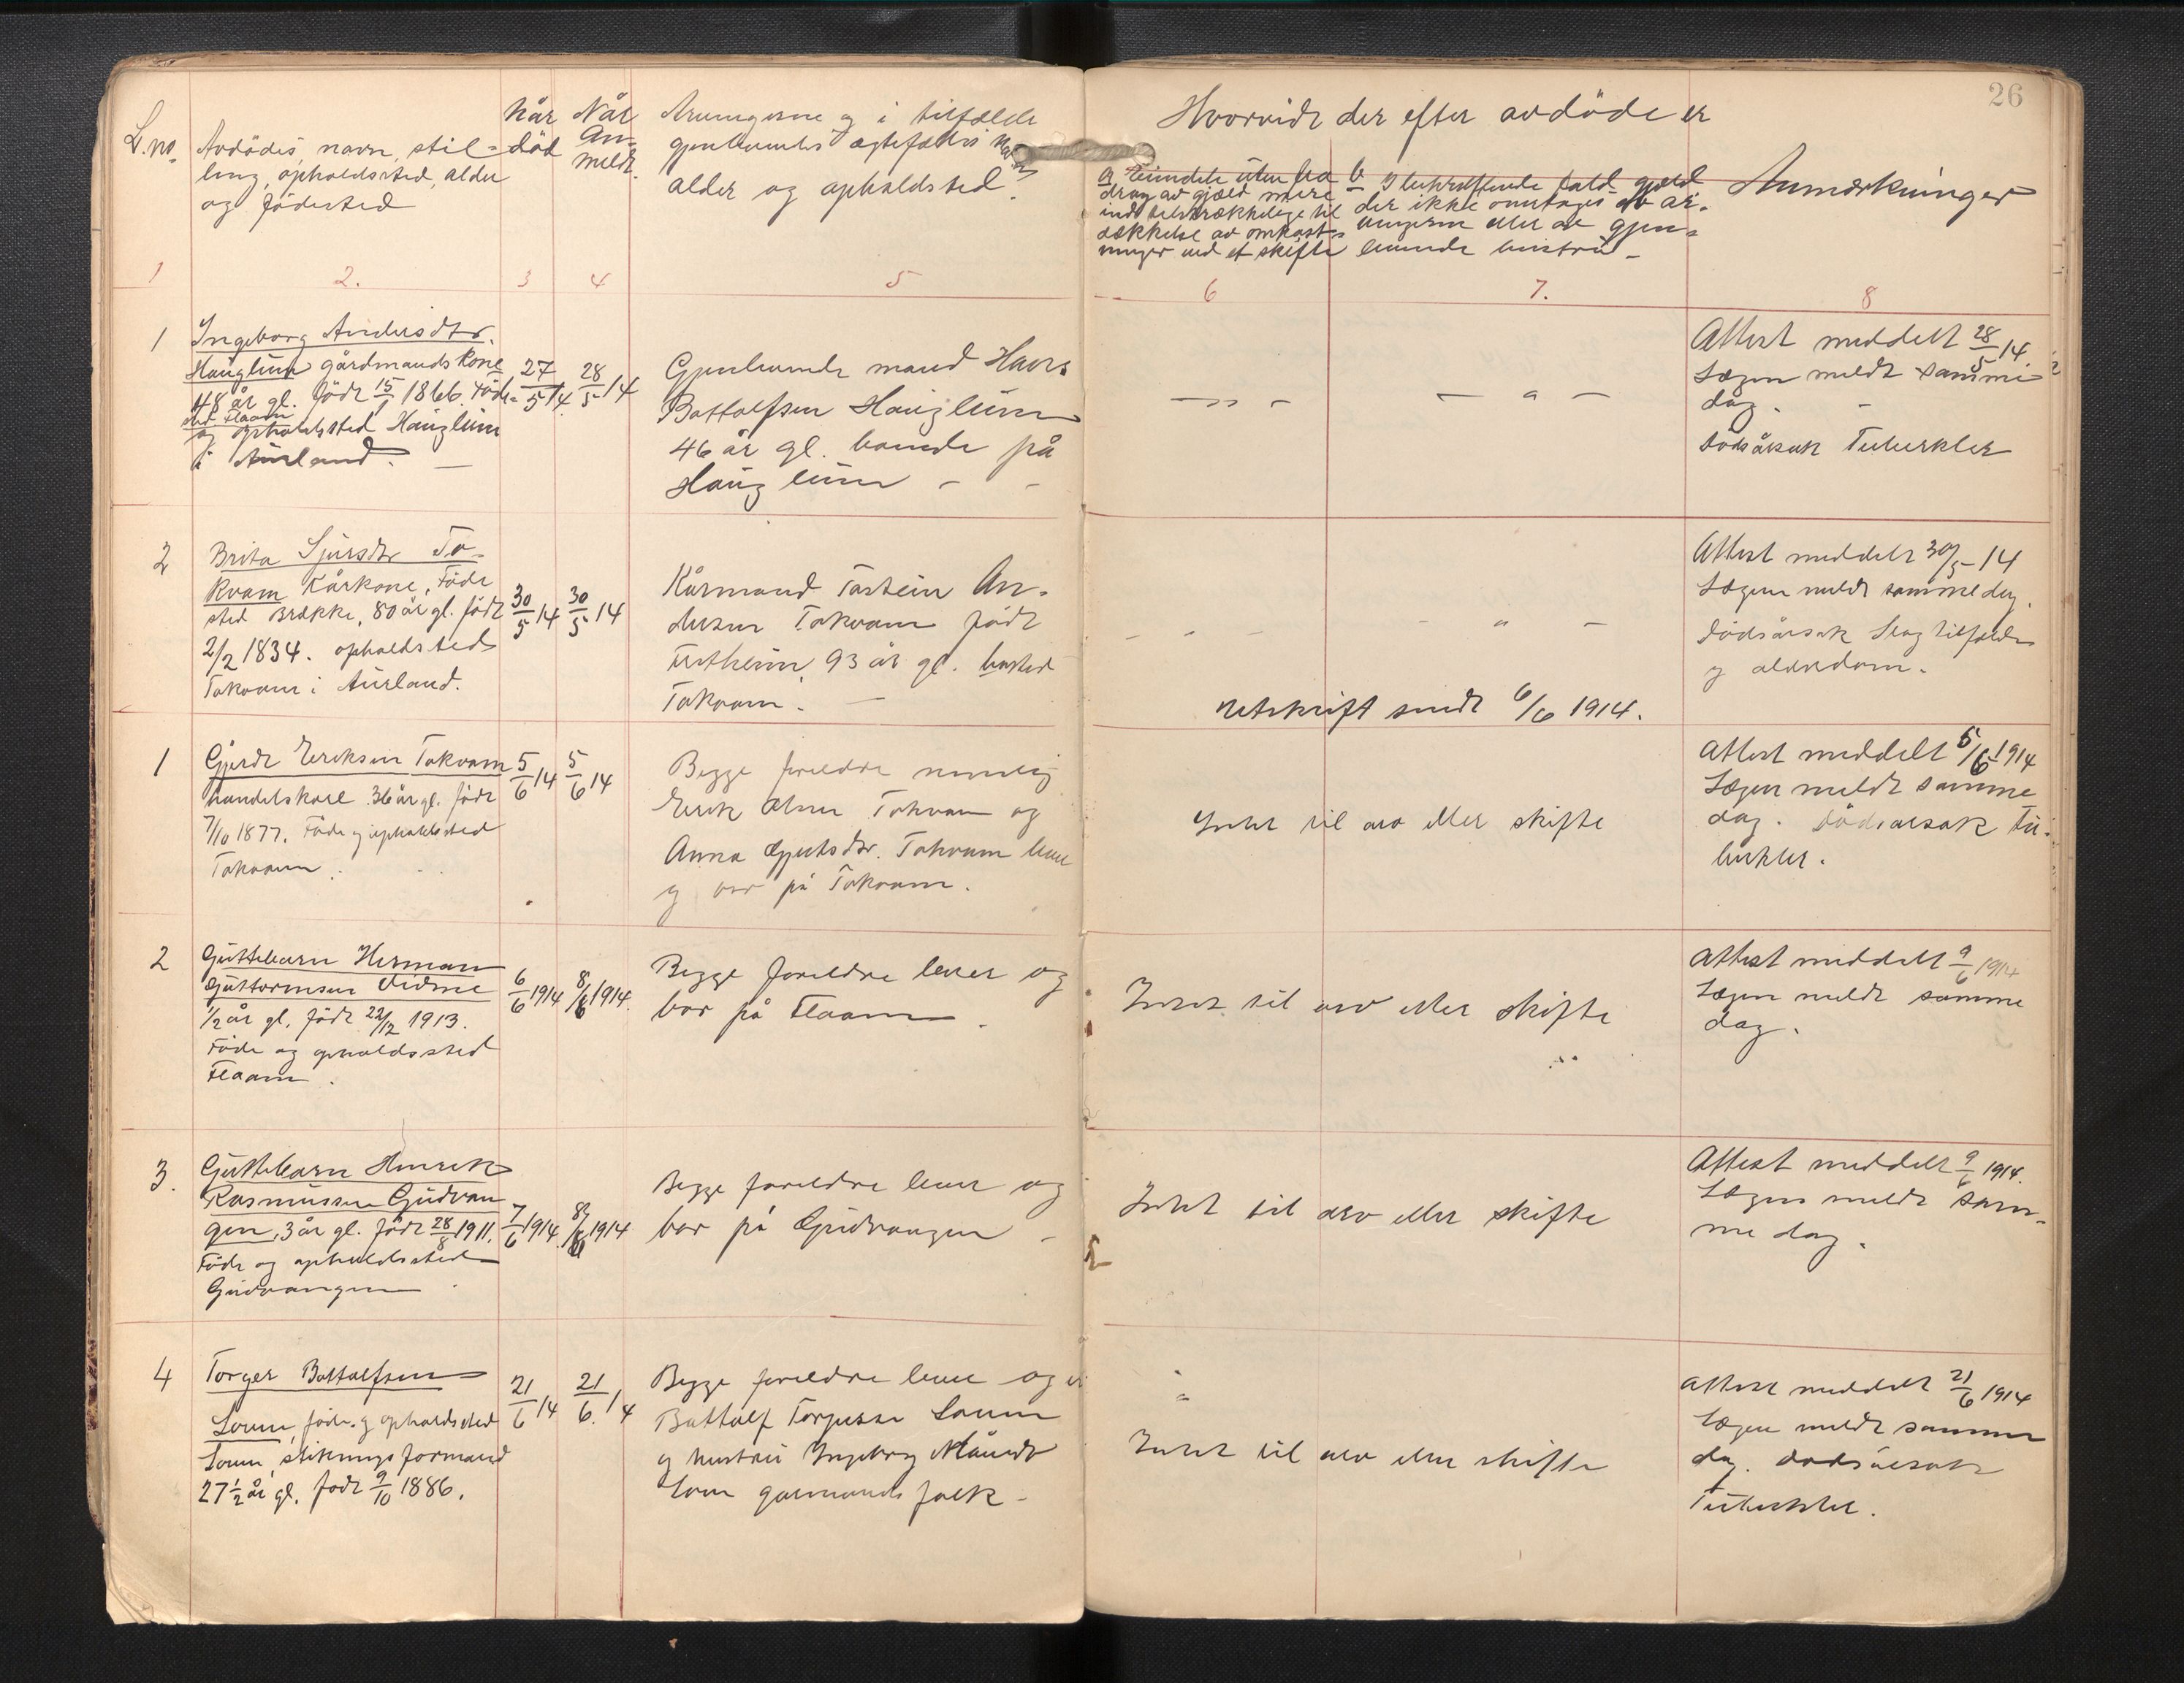 26
L.no
Avdödes navn, stil-
ling, opholdssted, alder
og födested
Når
död
Når
An-
meldt.
Arvingerne og i tilfælde
gjenlevendes ægtefælles navn
alder og opholdsted
Hvorvidt der efter avdöde er
a
drag av gjæld mere
end tilstrækkelige til
dækkelse av omkost-
ninger ved et skifte
b I bekræftende fald gjæld
der ikke overtages av ar-
vingerne eller den gjen-
levende hustru -
Anmærkninger
1
2.
3
4
5
6
7.
8
1
Ingeborg Andersdtr.
Hauglum gårdmands kone
48 år gl. född 15/1 1866. Föde-
sted Flaam
og opholdssted Hauglum
i Aurland. -
27/5 14
28/5 14
Gjenlevende mand Hans
Bottolfsen Hauglum
46 år gl. boende på
Hauglum - -
- " -
- " -
Attest meddelt 28/5 14
Lægen meldt samme
dag. -
Dödsårsak Tuberkler
2
Brita Sjursdtr To-
kvam Kårkone, Föde
sted Brække, 80 år gl. födt
2/2 1834. opholdsted
Tokvam i Aurland.
30/5 14
30/5 14
Kårmand Tostein An-
dersen Tokvam födt
Fretheim, 93 år gl. bosted
Tokvam. -
- - -
- " -
Utskrift sendt 6/6 1914.
Attest meddelt 30/5 - 14
Lægen meldt samme dag.
Dödsårsak Slagtilfælde
og alderdom.
1
Gjerdt Eriksen Tokvam
handelskarl 36 år gl. födt
7/10 1877. Föde og opholdssted
Tokvam.
5/6 14
5/6 14
Begge foreldre nemlig
Erik Olsen Tokvam og
Anna Gjertsdtr. Tokvam lever
og bor på Tokvam.
Intet til arv eller skifte
Attest meddelt 5/6 1914
Lægen meldt samme
dag. Dödsårsak Tu-
berkler.
2
Guttebarn Herman
Guttormsen Vidme
1/2 år gl. födt 22/12 1913.
Föde og opholdssted
Flaam.
6/6 1914
8/6 1914.
Begge foreldre lever og
bor på Flaam.
Intet til arv eller skifte
Attest meddelt 9/6 1914
Lægen meldt samme
dag.
3.
Guttebarn Henrik
Rasmussen Gudvan
gen, 3 år gl. födt 28/8 1911.
Föde og opholdssted
Gudvangen.
7/6 1914
8/6 1914
Begge foreldre lever og
bor på Gudvangen -
Intet til arv eller skifte
Attest meddelt 9/6 1914.
Lægen meldt sam-
me dag.
4
Torger Bottolfsen
Loven, föde og opholdssted
Loven, stikningsformand
27 1/2 år gl. födt 9/10 1886.
21/6 14
21/6. 14
Begge foreldre lever og
Bottolf Torgersen Loven
og hustru Ingeborg Månsdtr
Loven gårmandsfolk -
Intet til arv eller skifte
Attest meddelt 21/6 1914
Lægen meldt samme
dag. Dödsårsak
Tuberkler.